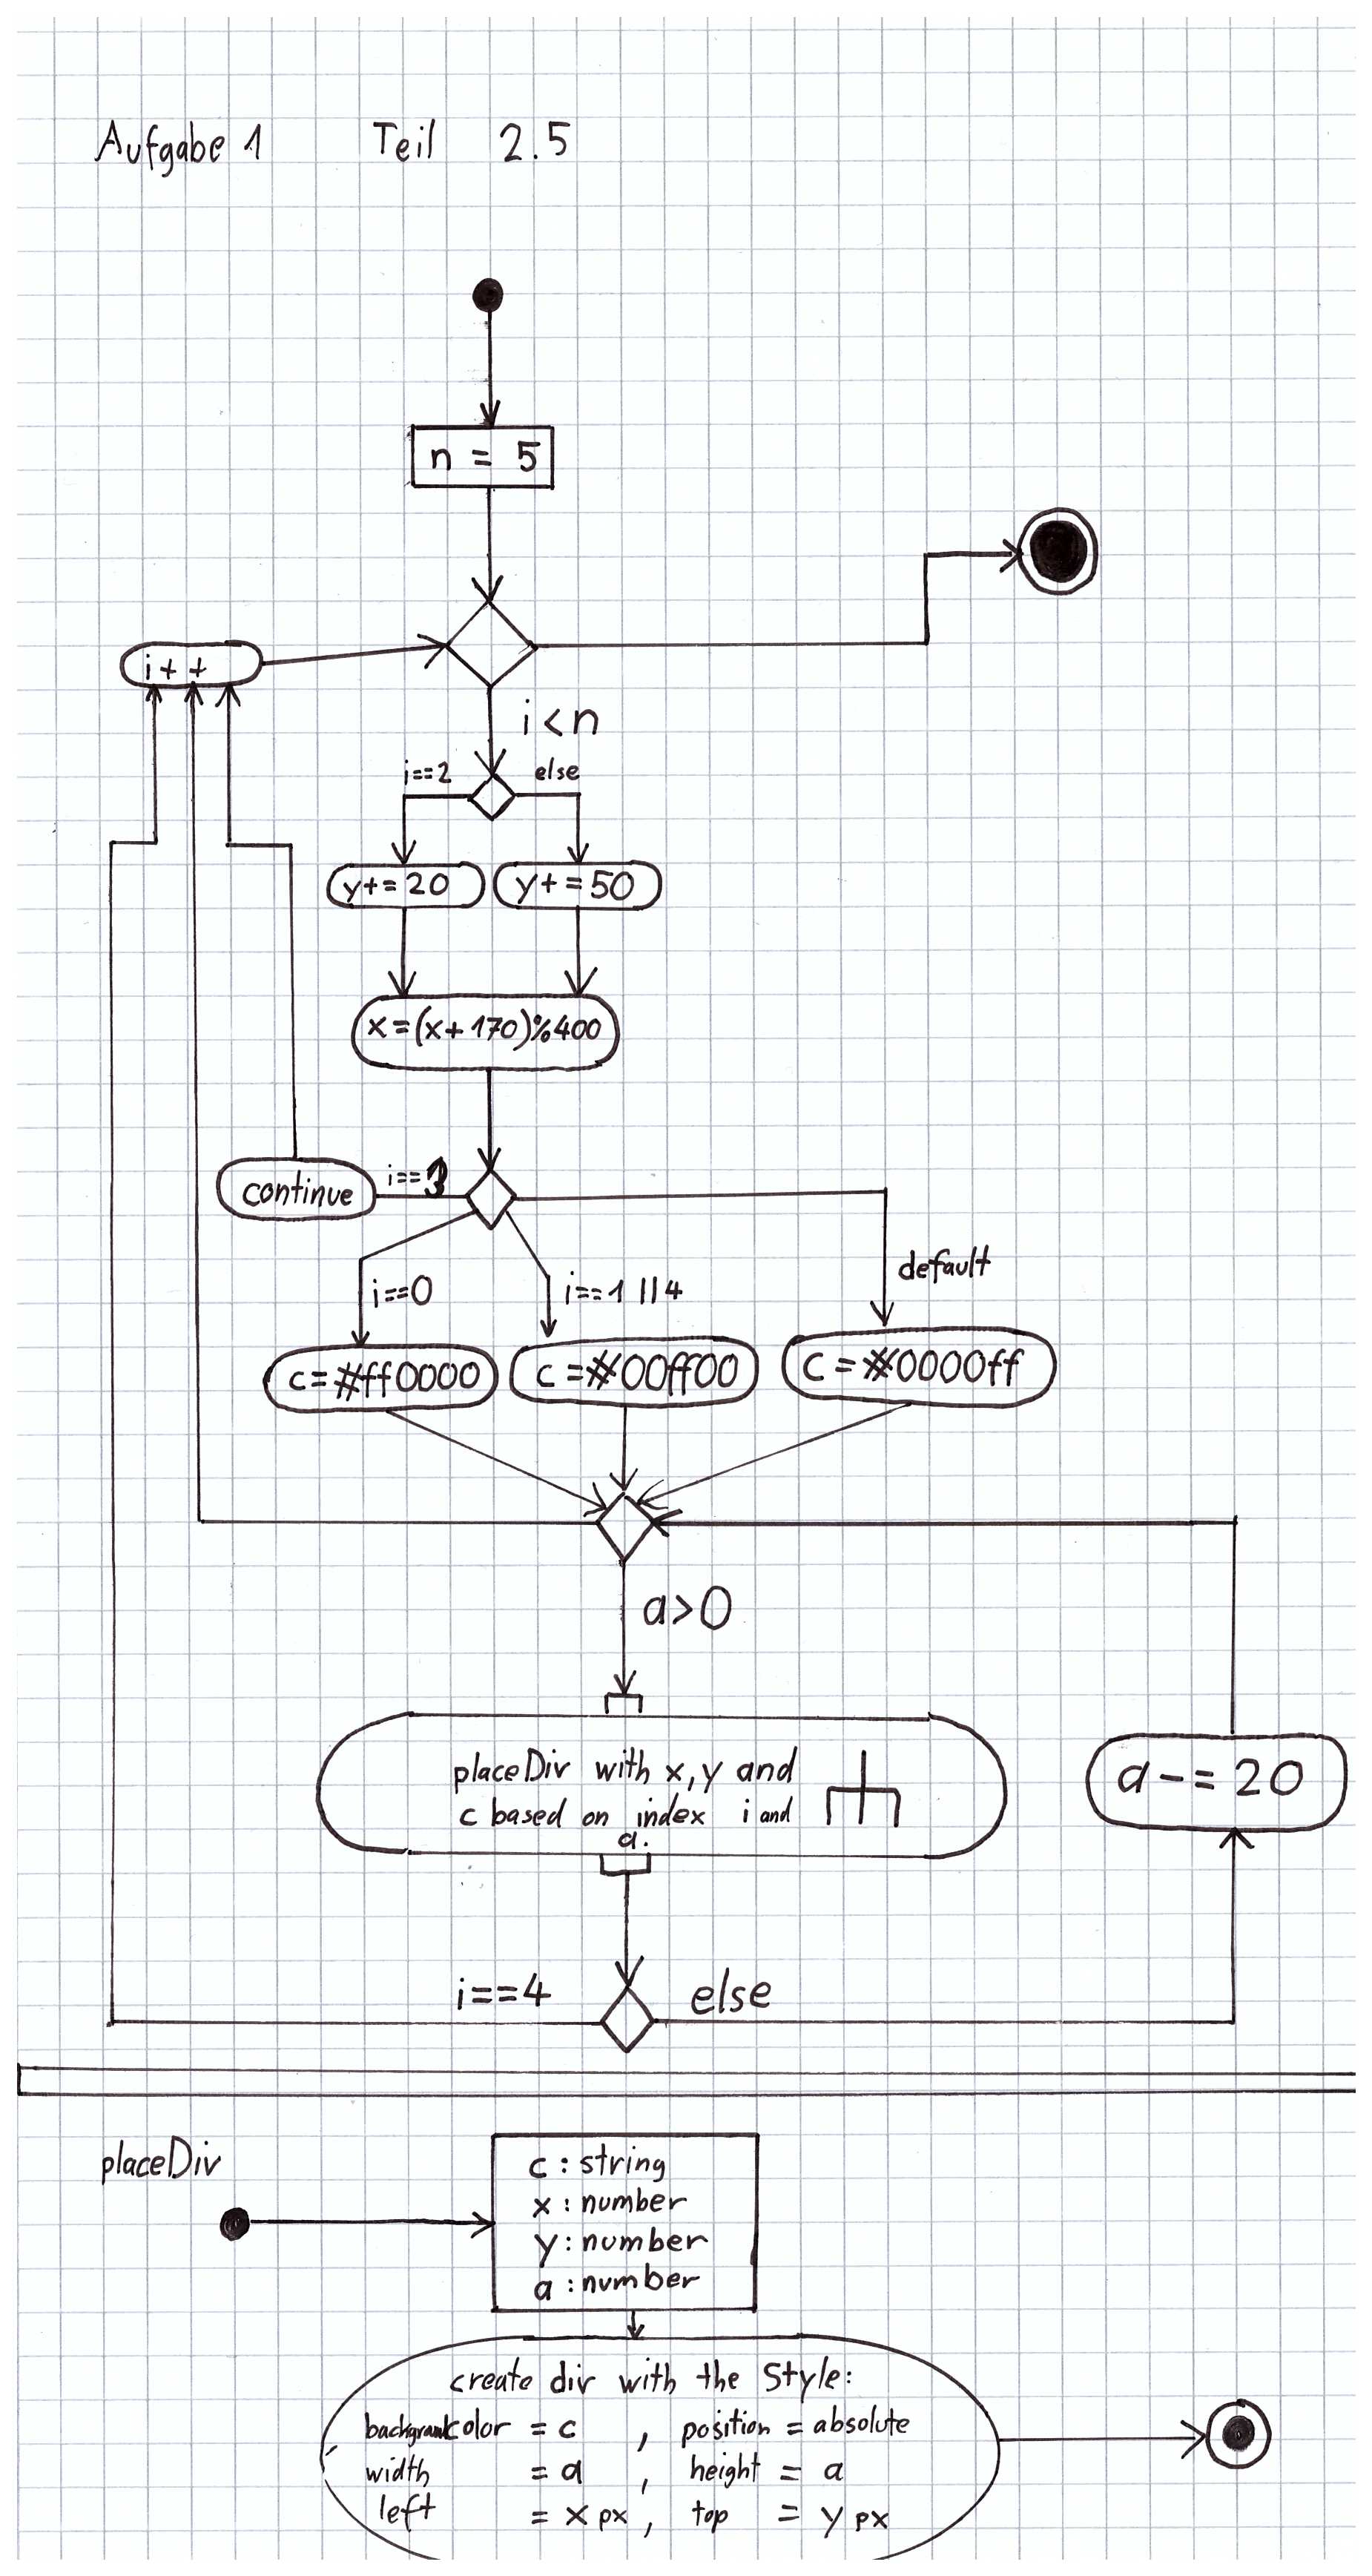 Aufgabe 1 Teil 2.5
n = 5
i++
i<n
i==2 else
y+=20 y+=50
x=(x+170)%400
continue i==3
default
i==0 i==1 ||4
c=#ff0000 c=#00ff00 c=#0000ff
a>0
placeDiv with x,y and
c based on index i and
a.
a-=20
i==4 else
placeDiv
c : string
x : number
y : number
a : number
create div with the Style:
= c , position = absolute
width = a , height = a
left = x px , top = y px